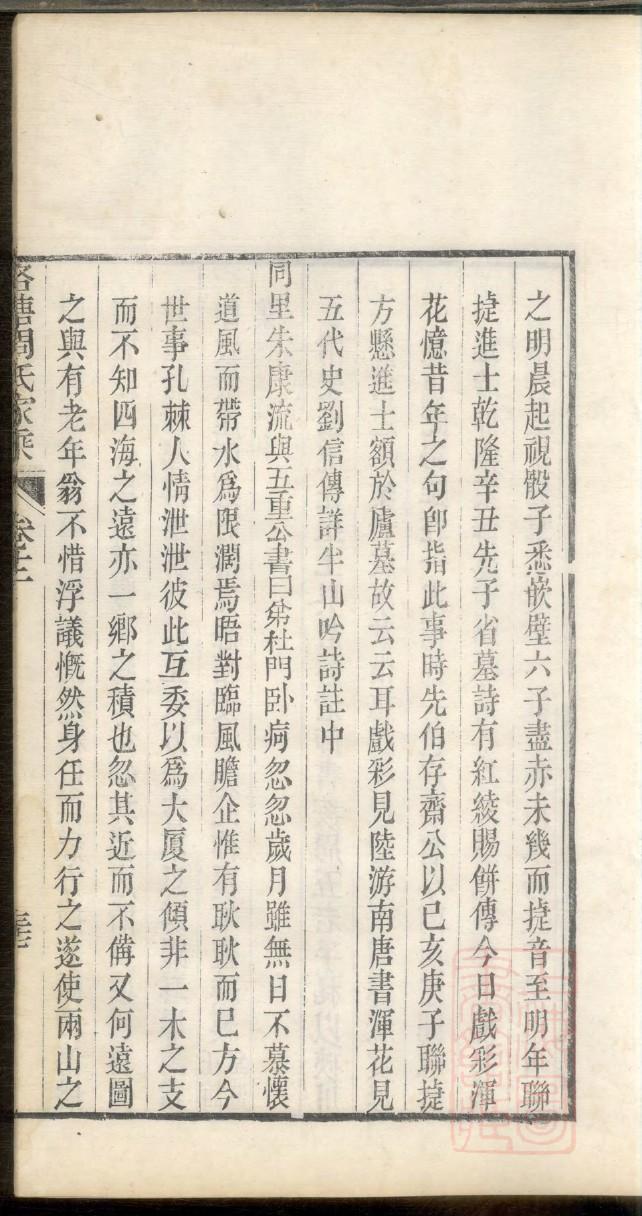 之明晨起視骰子悉嵌壁六子盡赤未幾而捷音至明年聯
捷進士乾隆辛丑先子省墓詩有紅綾賜餅傳今日戲彩渾
花憶昔年之句卽指此事時先伯存齋公以己亥庚子聯捷
方懸進士額於廬墓故云云耳戲彩見陸游南唐書渾花見
五代史劉信傳詳半山吟詩註中
同里朱康流與五重公書曰弟杜門卧病忽忽歲月雖無日不慕懷
道風而帶水爲限濶焉晤對臨風瞻企惟有耿耿而已方今
世事孔棘人情泄泄彼此互委以爲大厦之傾非一木之支
而不知四海之遠亦一鄉之積也忽其近而不備又何遠圖
之與有老年翁不惜浮議慨然身任而力行之遂使兩山之
周氏家乘 卷十二